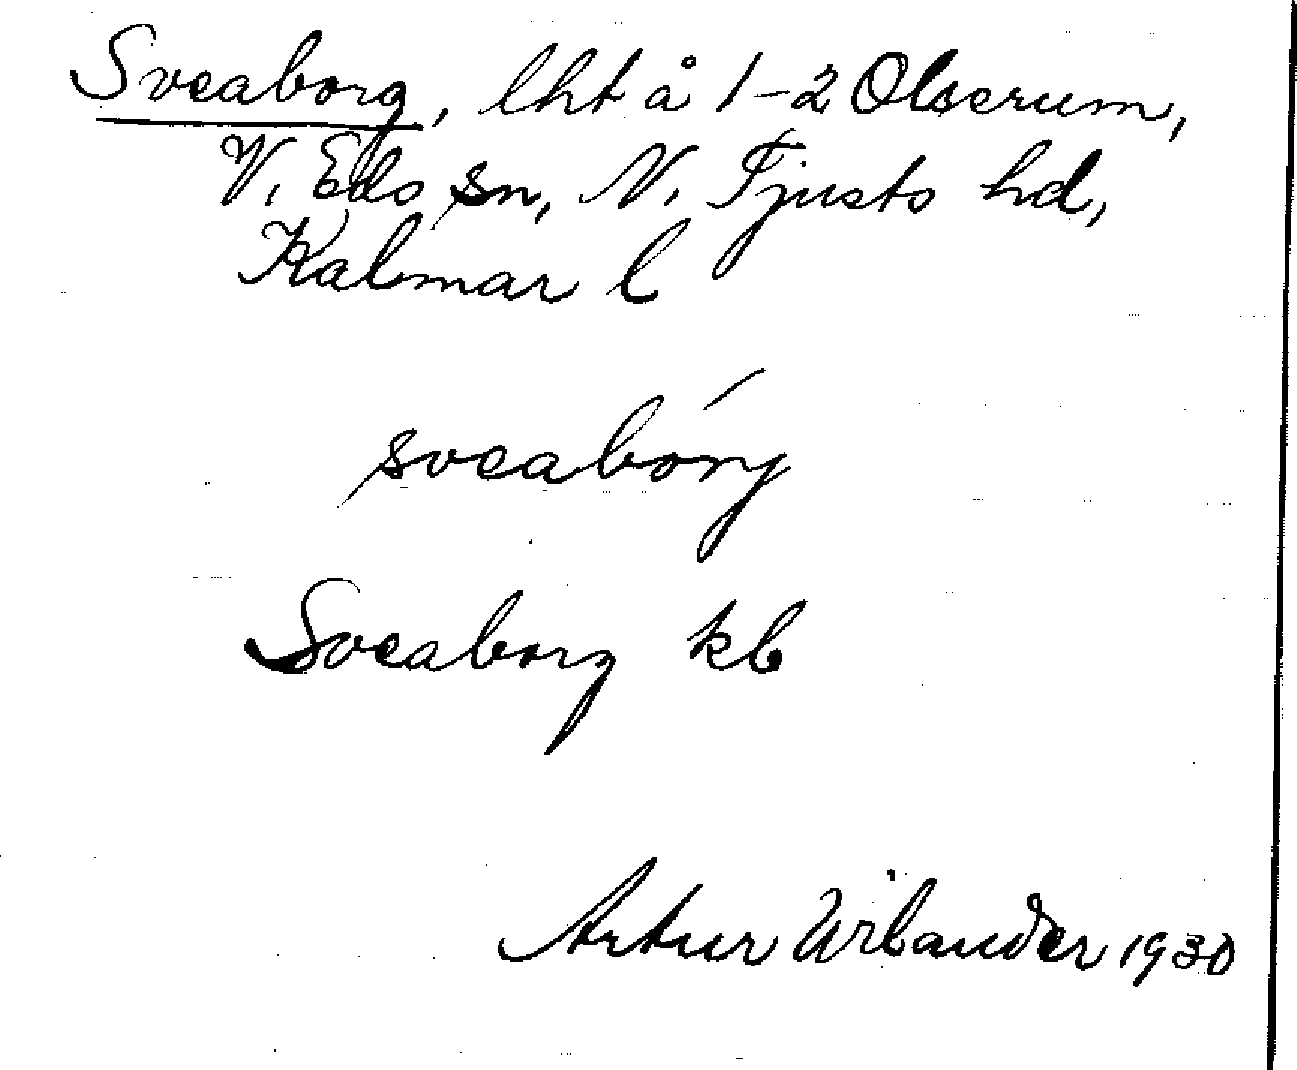 Sveaborg, lht å 1-2 Olserum,
V. Eds sn, N. Tjusts hd,
Kalmar l
sveabóry
Sveaborg kb
Artur Wilander 1930